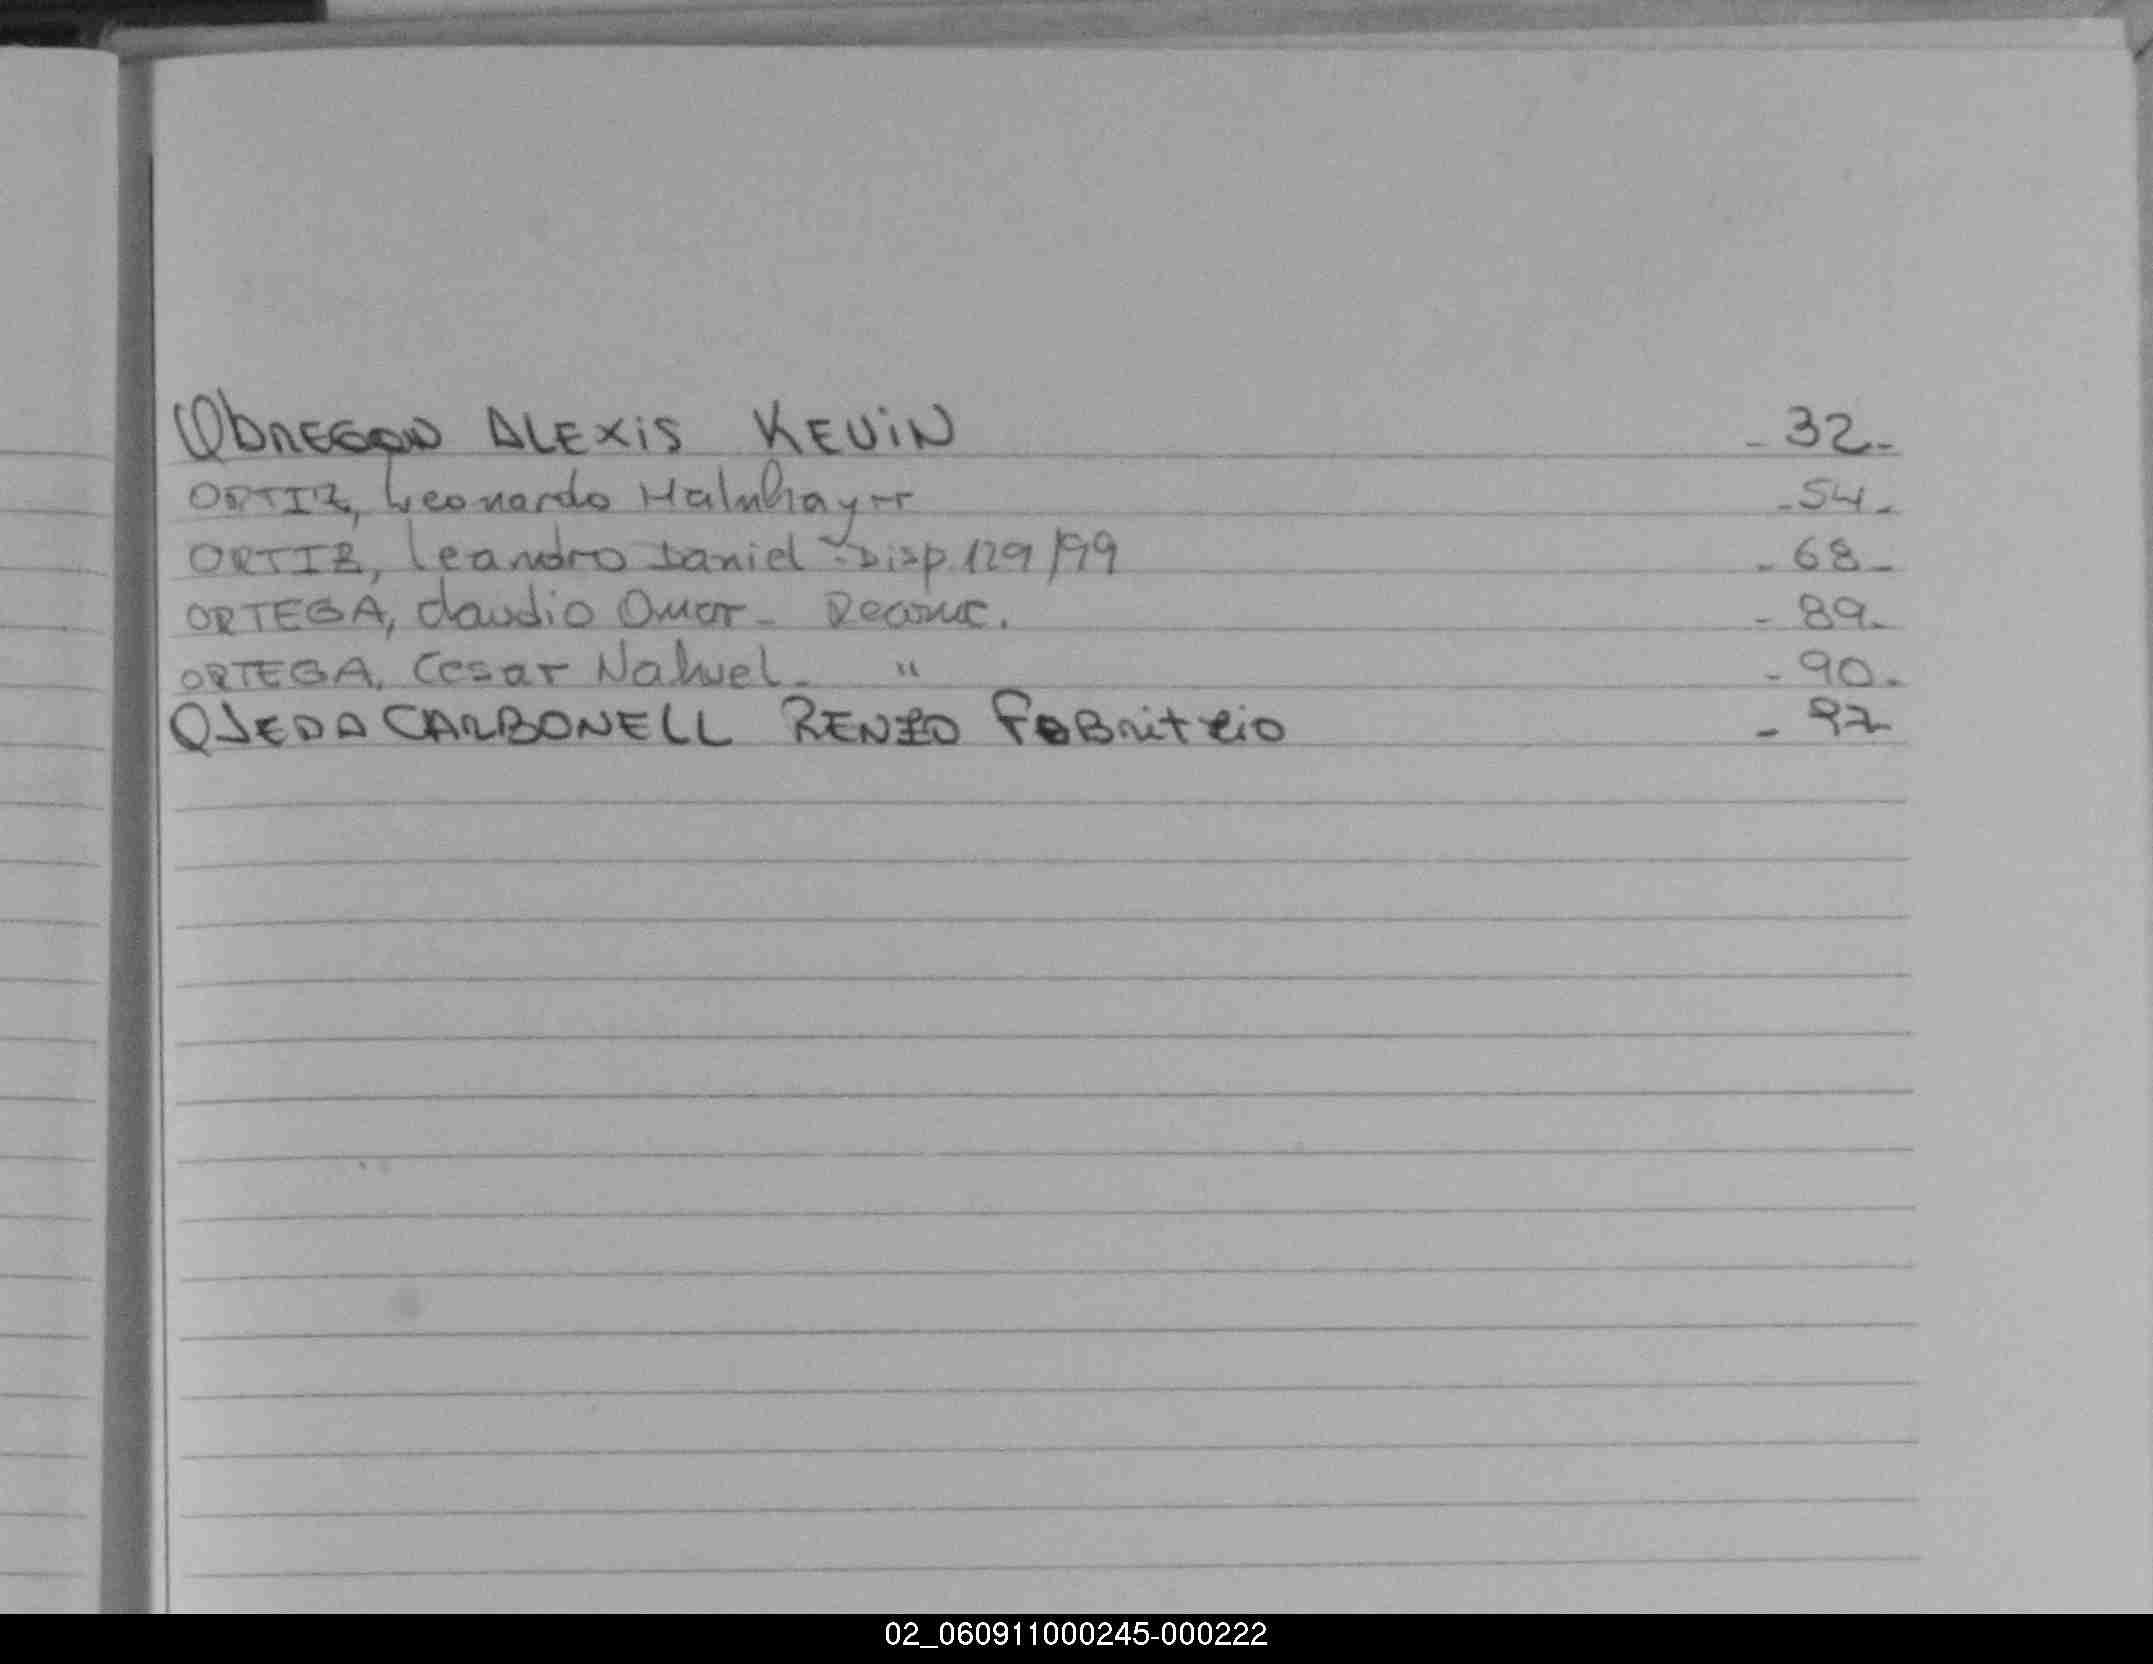 OBREGON ALEXIS KEVIN - 32 -
ORTIZ, Leonardo - 54 -
ORTIZ, Leandro Daniel - Disp. 129/99 - 68 -
ORTEGA, Claudio Omar - Reconc. - 89 -
ORTEGA, Cesar Nahuel - " - 90 -
OJEDA CARBONELL RENZO FABRITZIO - 97 -
02_060911000245-000222